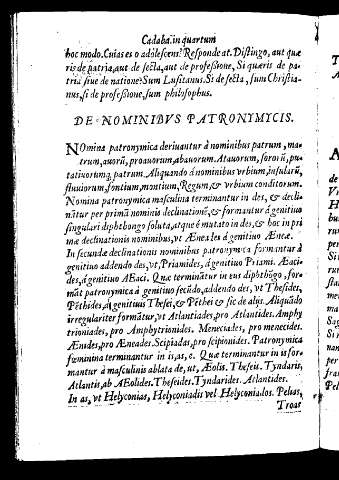 Cadaba. in quartum
hoc modo. Cuias es o adolescens? Responde at. Distingo, aut quæ
ris de patria, aut de secta, aut de professione, Si quæris de pa-
tria siue de natione? Sum Lusitanus. Si de secta, sum Christia-
nus, si de professione, sum philosophus.
DE NOMINIBVS PATRONYMYCIS.
NOmina patronymica deriuantur à nominibus patrum, ma-
trum, auorũ, proauorum, abauorum. Atauorum, sororũ, pu-
tatiuorumq, patrum. Aliquando á nominibus vrbium, insularũ,
fluuiorum, fontium, montium, Regum, & vrbium conditorum.
Nomina patronymica masculina terminantur in des, & decli-
nãtur per primã nominũ declinationẽ, & formantur á genitiuo
singulari diphthongo soluta, atque ẽ mutato in des, & hoc in pri
mæ declinationis nominibus, vt Æneades á genitiuo Æneæ.
In secundæ declinationis nominibus patronymica formantur à
genitiuo addendo des, vt, Priamides, á genitiuo Priami. Æaci-
des, á genitiuo AEaci. Quæ terminãtur in eus diphthõgo, for-
mãt patronymica á genitiuo secũdo, addendo des, vt Thesides,
Pethides, à genitiuo Thesei, & Pethei & sic de alijs. Aliquãdo
irregulariter formãtur, vt Atlantiades, pro Atlantides. Amphy
trioniades, pro Amphytrionides. Meneciades, pro menecides.
Ænides, pro Æneades. Scipiadas, pro scipionides. Patronymica
fœminina terminantur in is, as, e. Quæ terminantur in is for-
mantur à masculinis ablata de, ut, Æolis. Theseis. Tyndaris,
Atlantis, ab AEolides. Theseides. Tyndarides. Atlantides.
In as, vt Helyconias, Helyconiadis vel Helyconiados. Pelias,
Troas